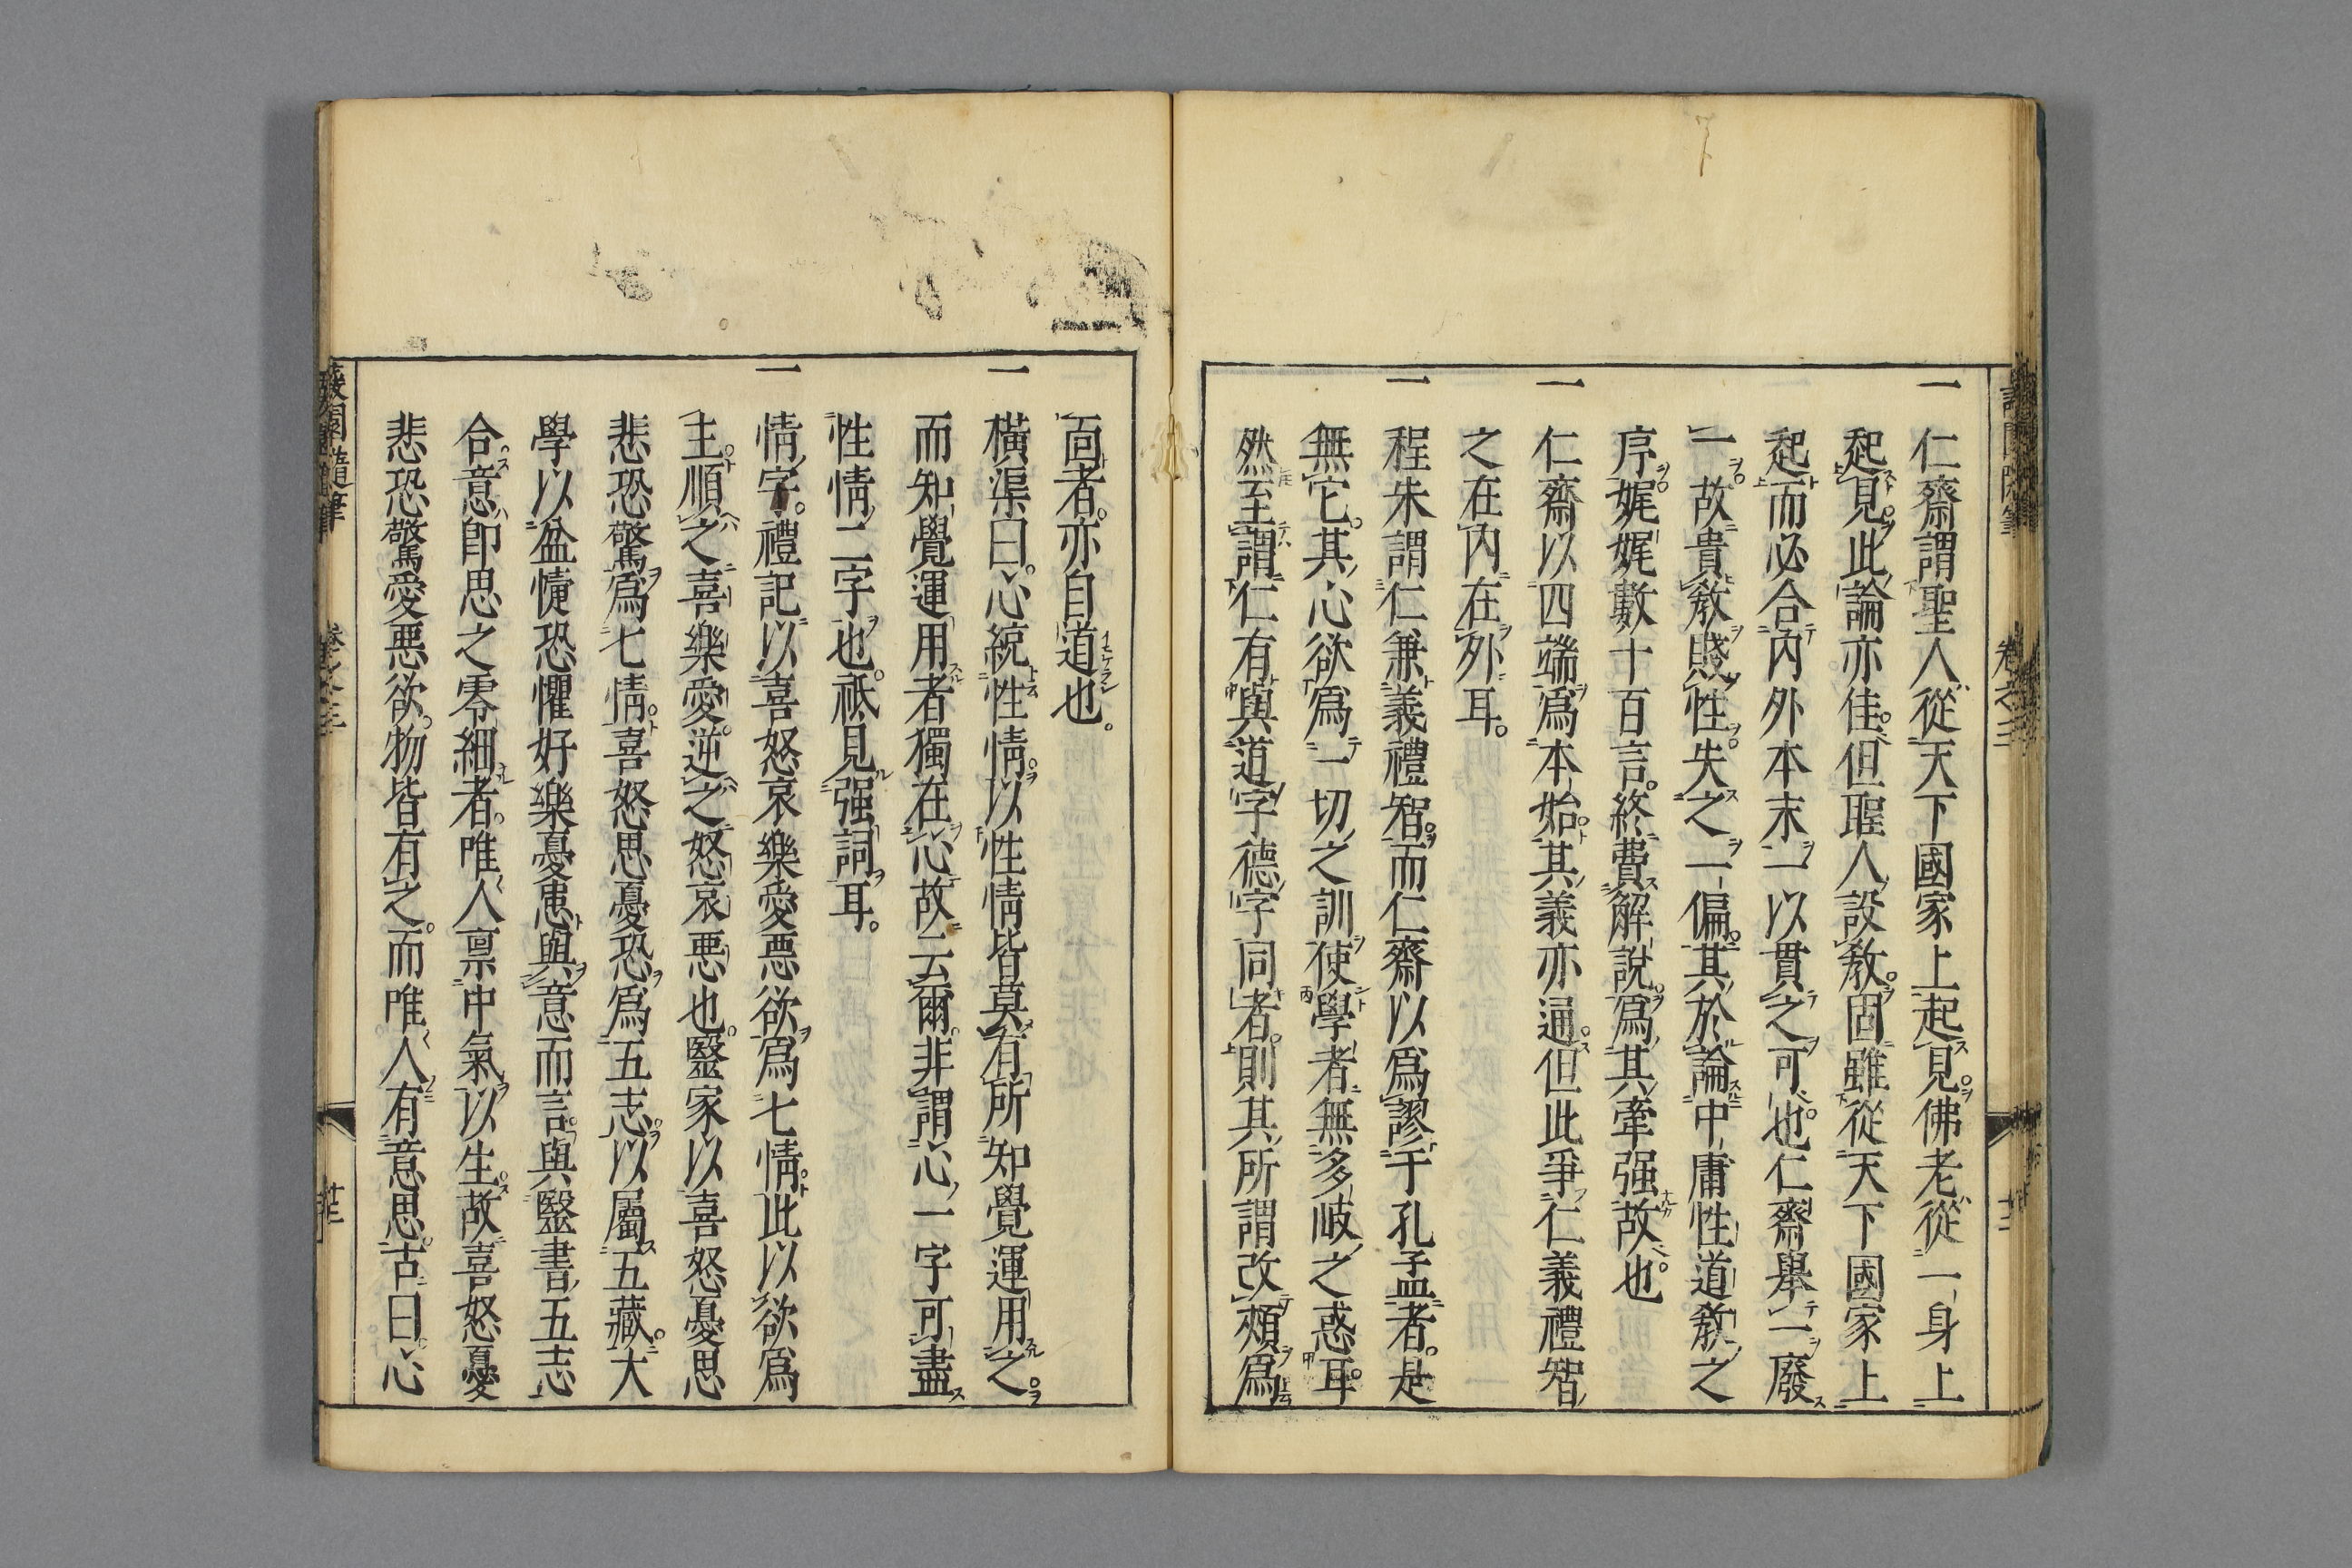 一仁齋謂聖人從天下國家上起見佛老從一身上
起見此論亦佳但聖人設教固雖從天下國家上
起而必合內外本末一以貫之可也仁齋舉一廢
一故貴教賤性失之一偏其於論中庸性道教之
序娓娓數十百言終費解說爲其牽强故也
一仁齋以四端爲本始其義亦通但此爭仁義禮智
之在內在外耳
一程朱謂仁兼義禮智而仁齋以爲謬于孔孟者是
無它其心欲爲一切之訓使學者無多岐之惑耳
然至謂仁有與道字德字同者則其所謂改頰爲
靣者亦自道也
一橫渠曰心統性情以性情皆莫有所知覺運用之
而知覺運用者獨在心故云爾非謂心一字可盡
性情二字也祗見强詞耳
一情字禮記以喜怒哀樂愛惡欲爲七情此以欲爲
主順之喜樂愛逆之怒哀惡也醫家以喜怒憂思
悲恐驚爲七情喜怒思憂恐爲五志以屬五藏大
學以忿懥恐懼好樂憂患與意而言與醫書五志
合意卽思之零細者唯人禀中氣以生故喜怒憂
悲恐驚愛惡欲物皆有之而唯人有意思古曰心
蘐園隨筆 卷之三